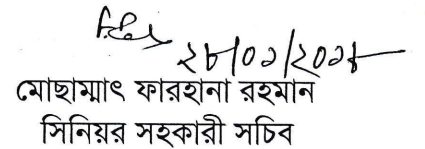 ২৮/০১/২০১৮
মোছাম্মাৎ ফারহানা রহমান
সিনিয়র সহকারী সচিব